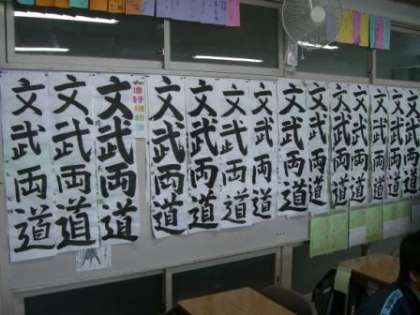 文武両道
文武両道
文武両道
文武両道
文武両道
文武両道
文武両道
文武両道
文武両道
文武両道
文武両道
文武両道
文武両道
文武両道